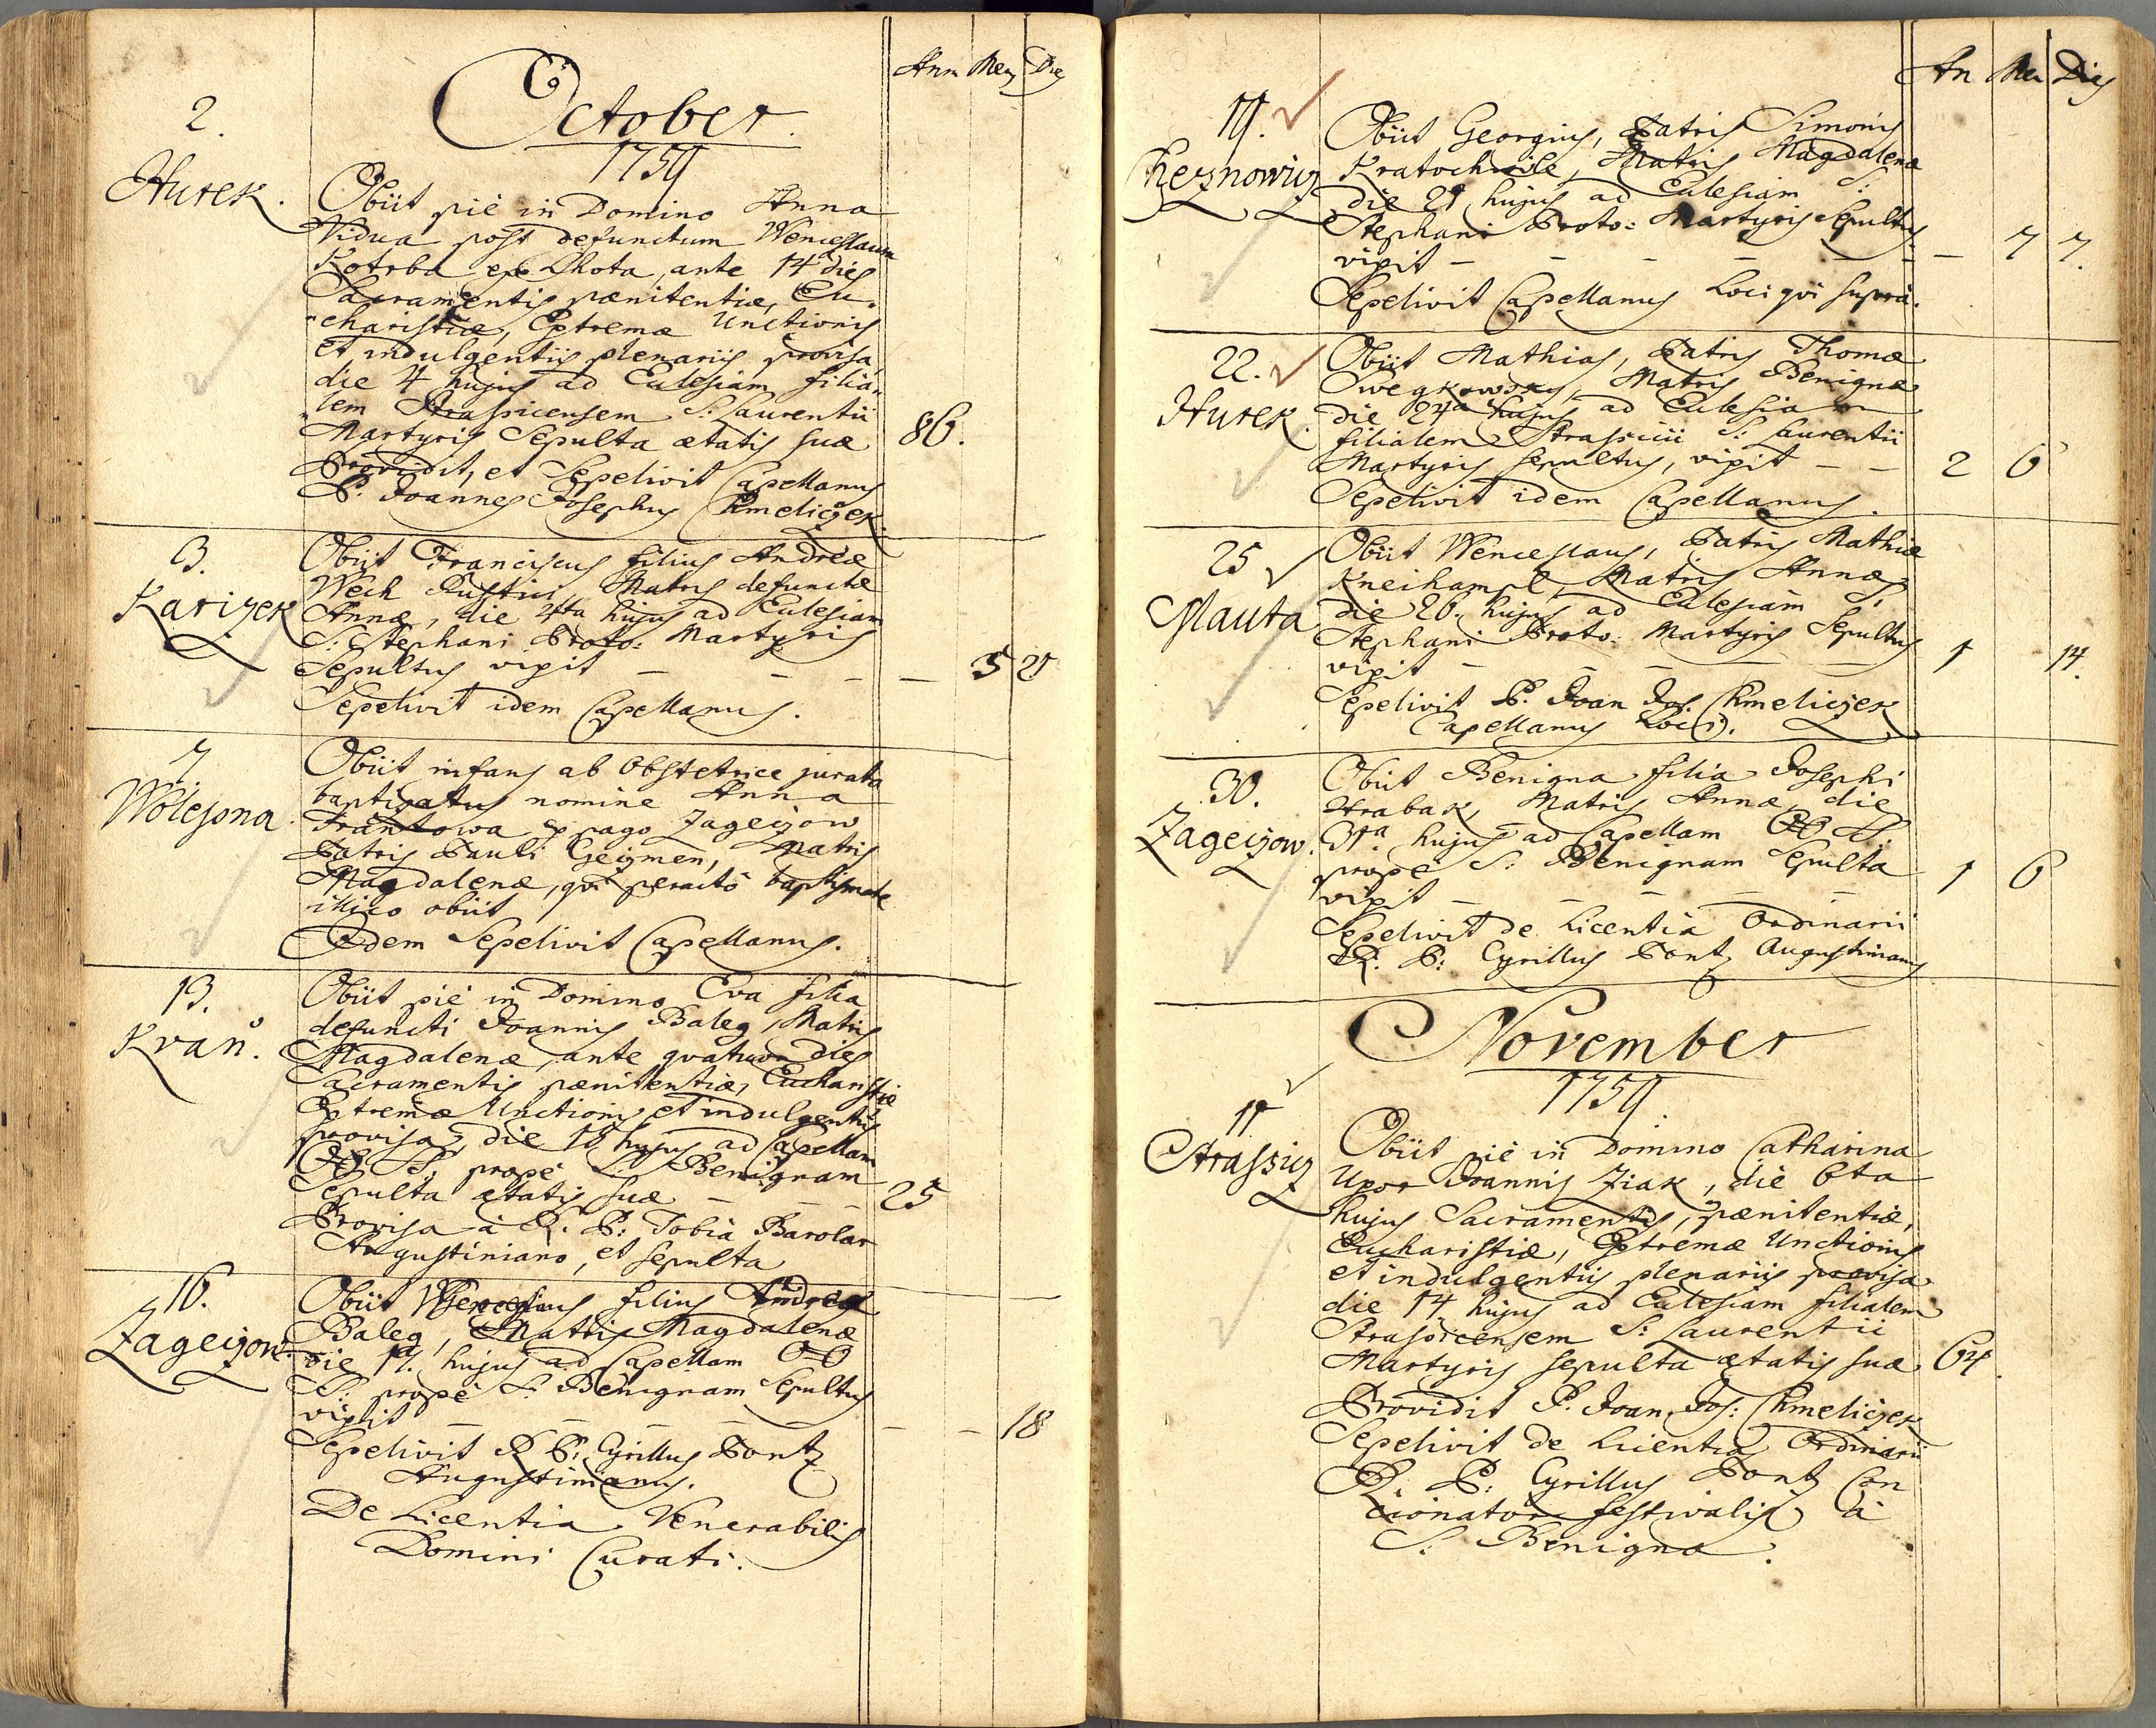 Ann Men Dies
October
1759
2.
Hurek.
Obiit piè in Domino Anna
Vidua post defunctum Wenceslaum
Kotrba ex Lhota, ante 14 dies
Sacramentis pænitentiæ, Eu-
-charistiæ, Extremæ Unctionis
et indulgentiis plenariis provisa,
die 4 hujus ad Eclesiam filia-
-lem Strassicensem S: Laurentii
Martyris Sepulta ætatis suæ 86.
Providit, et Sepelivit Capellanus
P. Joannes Josephus Chmeliczek.
3.
Karizek
Obiit Franciscus filius Andreæ
Wech Rustici, Matris defunctæ
Annæ, die 4ta hujus ad Eclesiam
S: Stephani Proto: Martyris
Sepultus vixit — — — — 5 21
Sepelivit idem Capellanus.
7
Wolesna.
Obiit infans ab Obstetrice jurata
baptizatus nomine Anna
Frantowa ex pago Zageczow
Patris Pauli Geizmen, Matris
Magdalenæ, qui peractô baptismate
illico obiit
Idem Sepelivit Capellanus.
13.
Kván.
Obiit piè in Domino Eva filia
defuncti Joannis Baleg, Matris
Magdalenæ, ante qvatuor dies
Sacramentis pænitentiæ, Eucharistiæ
Extremæ Unctionis et indulgentiis
provisa, die 16 hujus ad Capellam
OO SS: propè S: Benignam
Sepulta ætatis suæ — — 25
Provisa à R. P: Tobia Barolar
Augustiniano, et sepulta
16.
Zageczow.
Obiit filius Andreæ
Baleg, Matris Magdalenæ
die 17. hujus ad Capellam OO
SS: propè S: Benignam Sepultus
vixit — — — — — — 18
Sepelivit R P: Cyrillus Pontz
Augustinianus.
De Licentia Venerabilis
Domini Curati.
An Men Dies
19.
Cheznowicz
Obiit Georgius, Patris Simonis
Kratochwile, Matris Magdalenæ
die 21 hujus ad Eclesiam S:
Stephani Proto: Martyris Sepultus
vixit — — — — — — 7 7.
Sepelivit Capellanus Loci qvi suprà.
22.
Hurek.
Obiit Mathias, Patris Thomæ
Swegkowsky, Matris Benignæ
die 24a hujus ad Eclesiam
filialem Strassicii S: Laurentii
Martyris sepultus, vixit — — 2 6
Sepelivit idem Capellanus.
25
Mauta
Obiit Wenceslaus, Patris Mathiæ
Kneihampl, Matris Annæ,
die 26. hujus ad Eclesiam S,
Stephani Proto: Martyris Sepultus
vixit — — — — — 1 14.
Sepelivit P. Joan Jos. Chmeliczek
Capellanus Loci.
30.
Zageczow.
Obiit Benigna filia Josephi
Hrabak, Matris Annæ, die
31a hujus ad Capellam OO SS:
propè S: Benignam Sepulta
vixit — — — — — 1 6
Sepelivit de Licentia Ordinarii
R. P: Cyrillus Pontz Augustinianus
November
1759.
11
Strassicz
Obiit piè in Domino Catharina
Uxor Joannis Ziak, die 6ta
hujus Sacramentis, pænitentiæ,
Eucharistiæ, Extremæ Unctionis
et indulgentiis plenariis provisa
die 14 hujus ad Eclesiam filialem
Strassicensem S: Laurentii
Martyris sepulta ætatis suæ 64.
Providit P. Joan, Jos: Chmeliczek
Sepelivit de Licentia Ordinarii
R. P: Cyrillus Pontz Con
cionator festivalis à
S: Benigna.